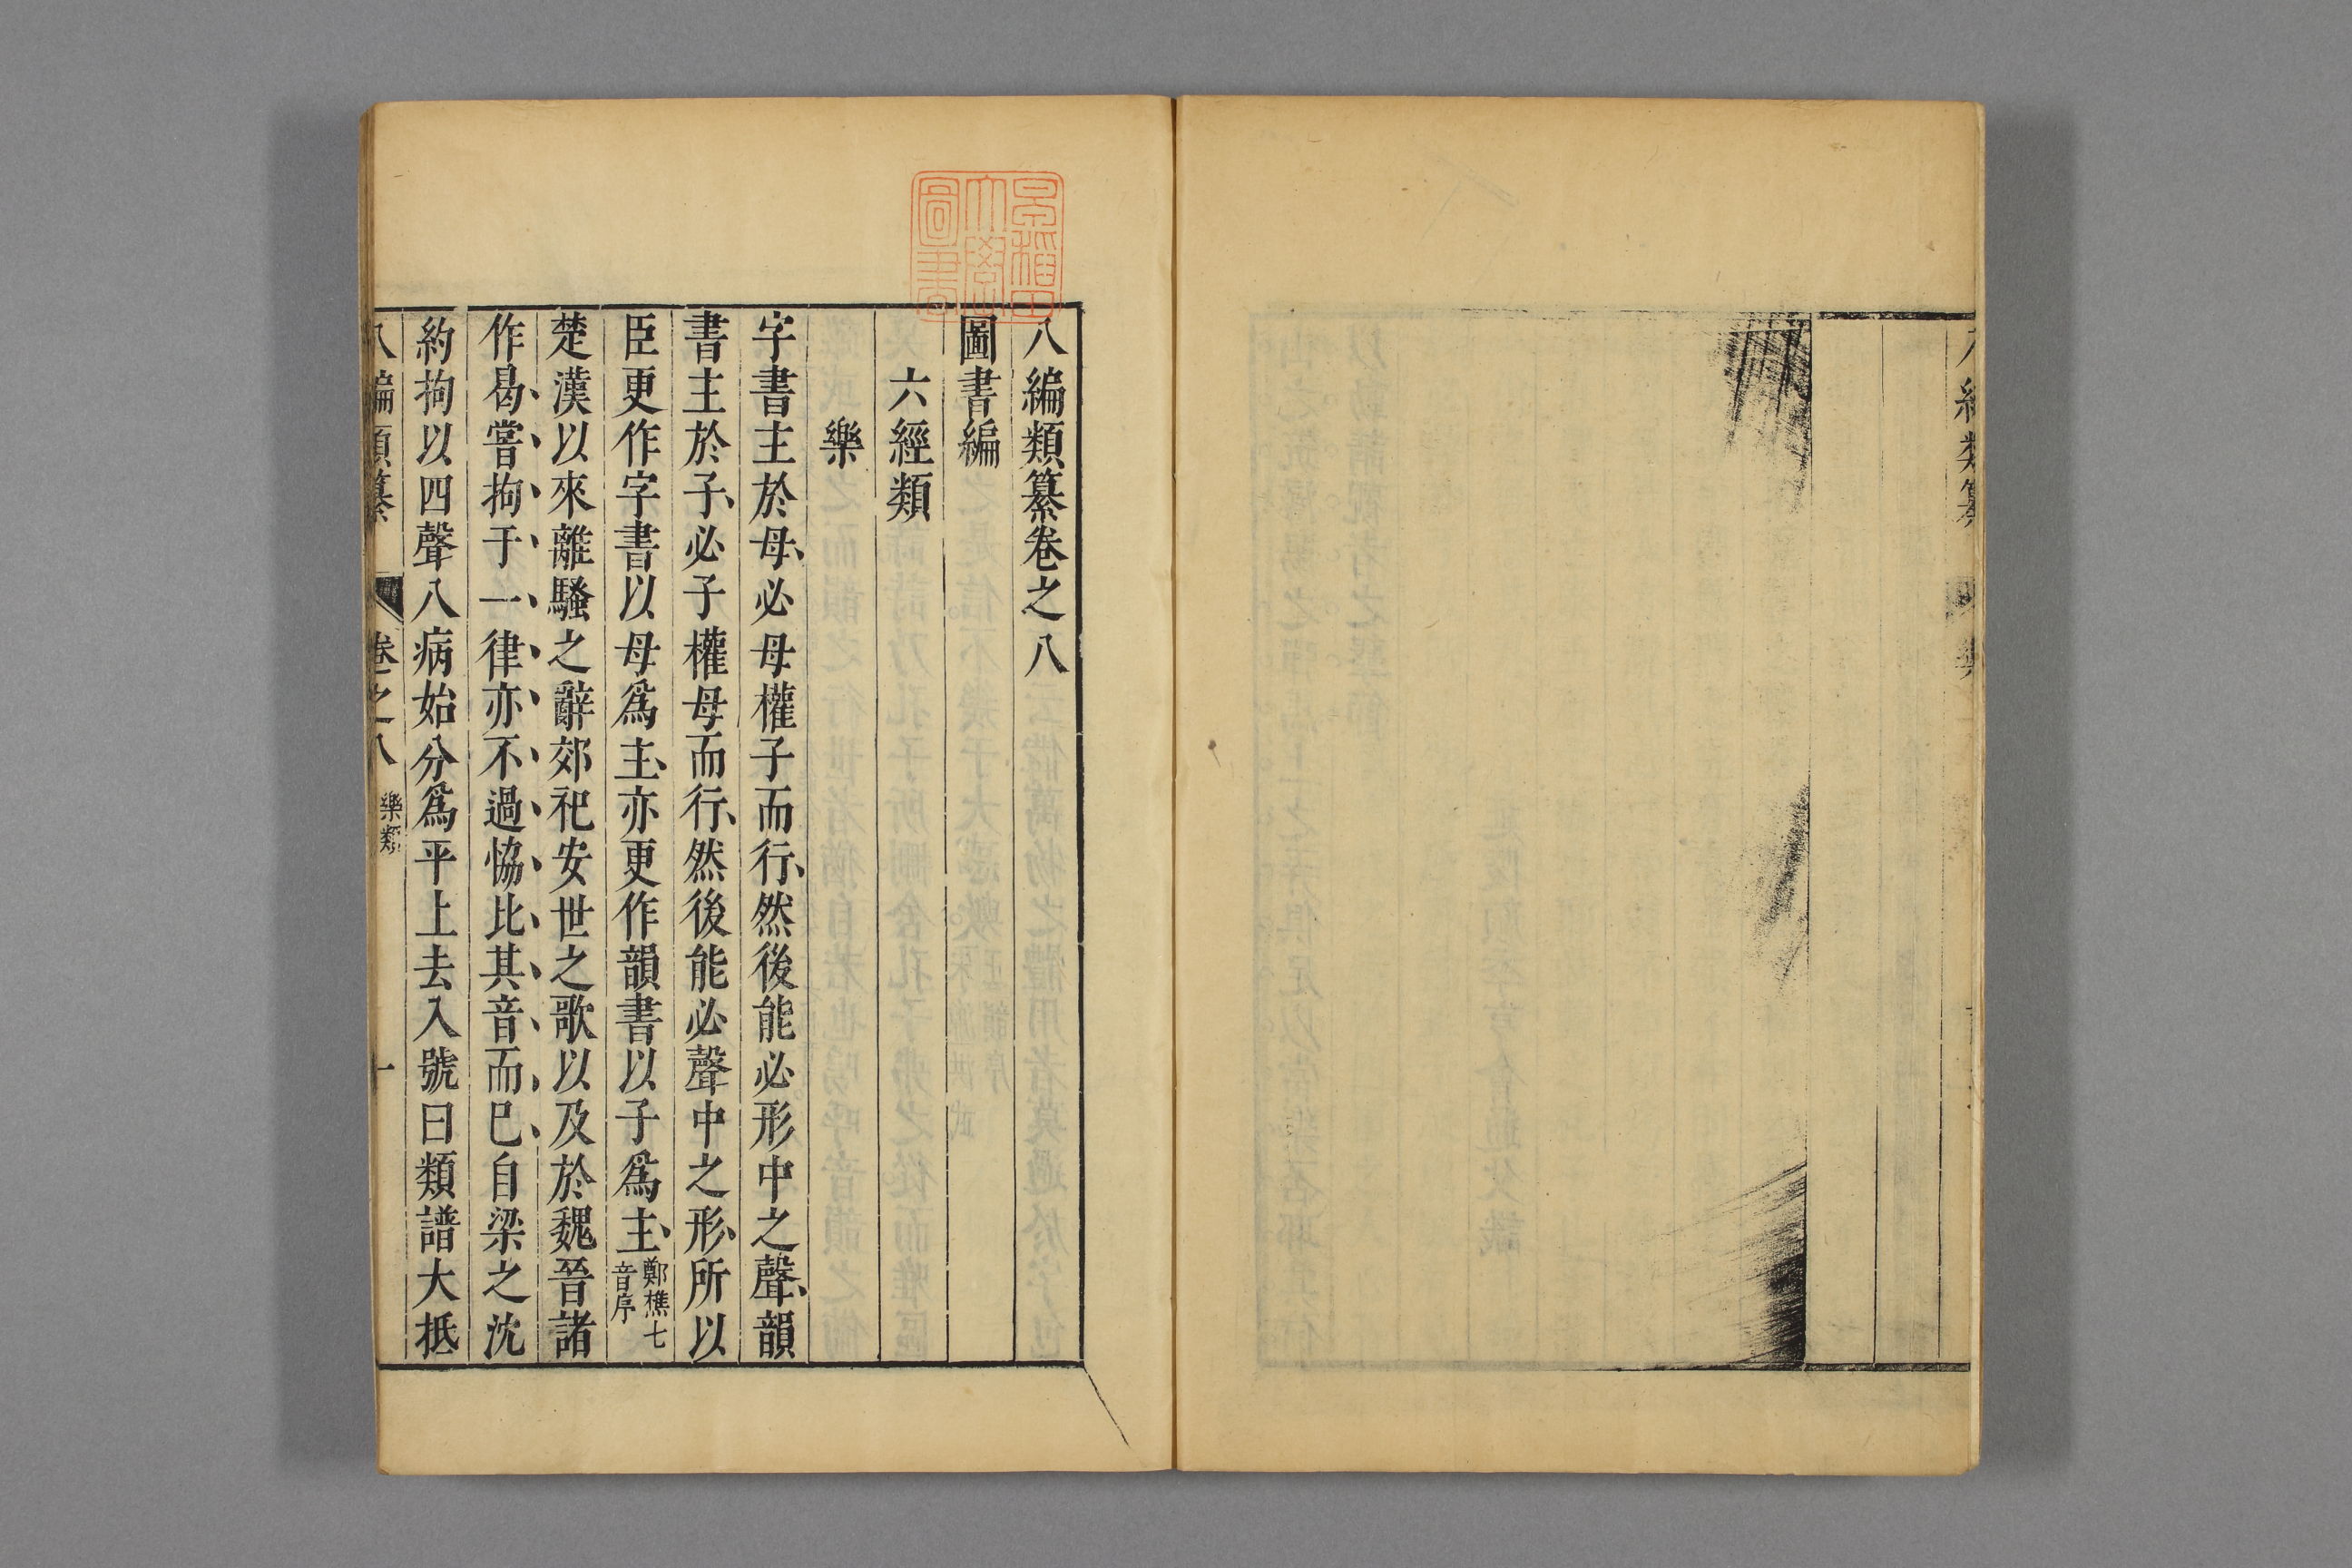 八編類纂卷之八
圖書編
六經類
樂
字書主於母必母權子而行然後能必形中之聲韻
書主於子必子權母而行然後能必聲中之形所以
臣更作字書以母爲主亦更作韻書以子爲主鄭樵七
音序
楚漢以來離騷之辭郊祀安世之歌以及於魏晉諸
作曷嘗拘于一律亦不過恊比其音而巳自梁之沈
約拘以四聲八病始分爲平上去入號曰類譜大抵
八編類纂 卷之八 樂類 一